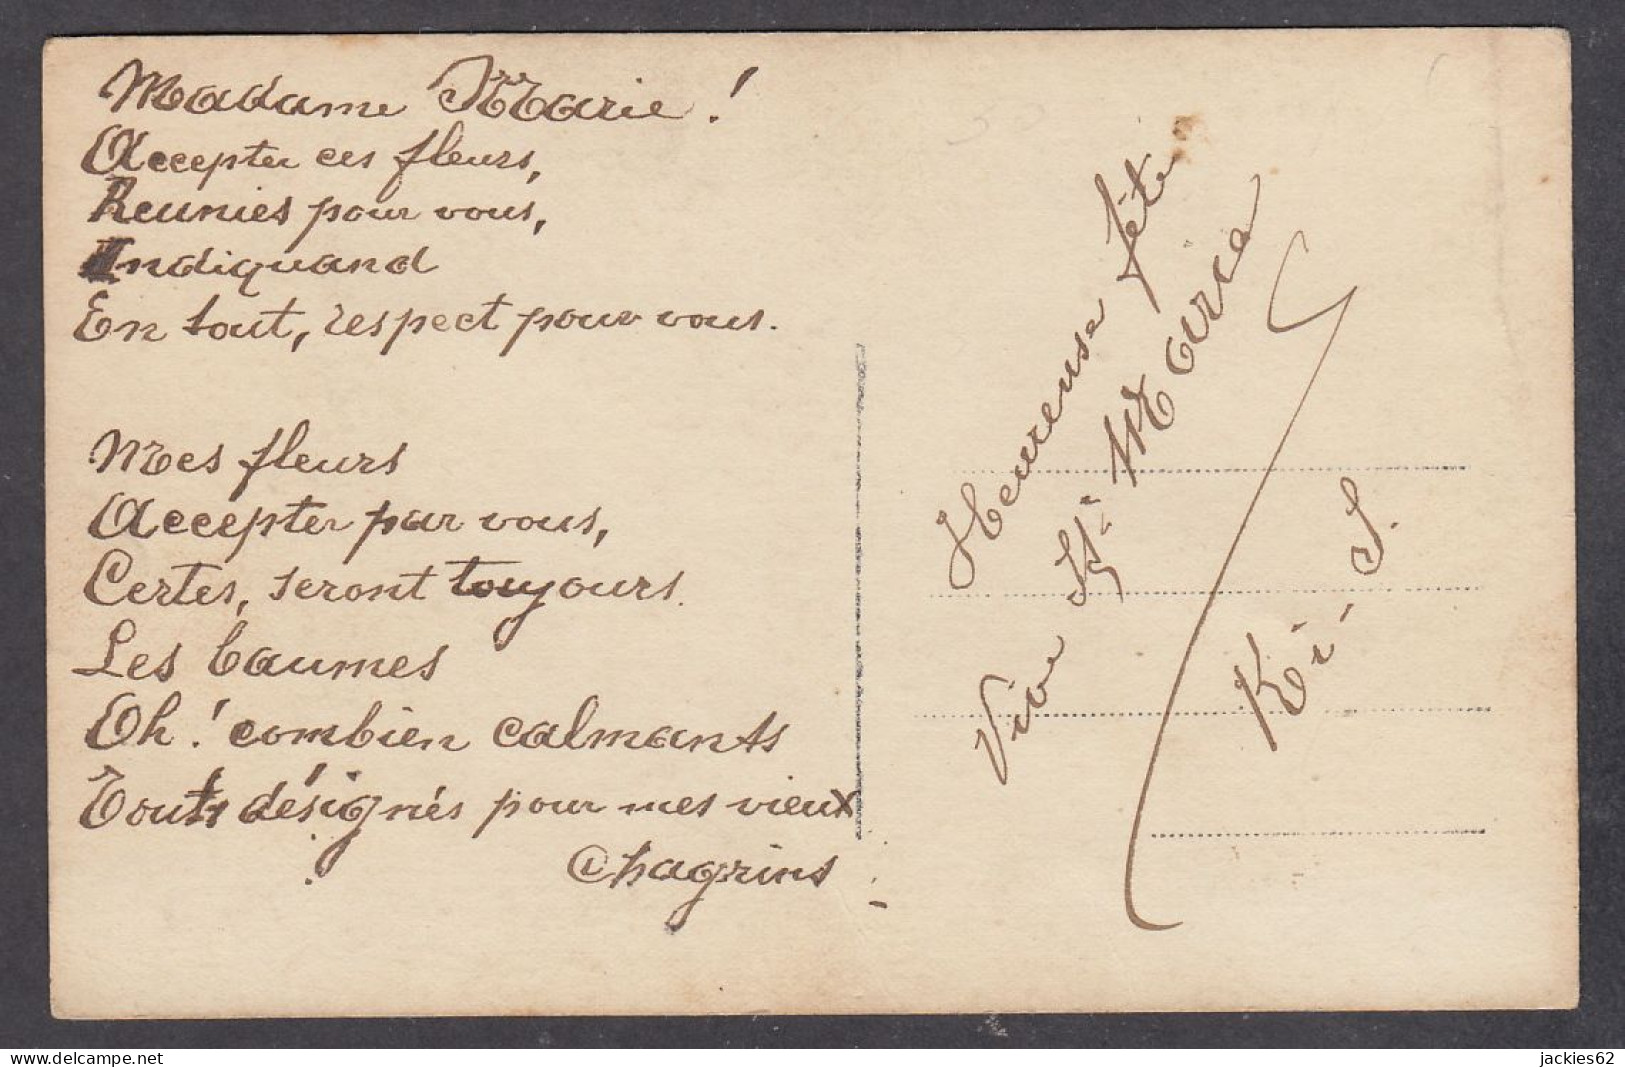 Madame Marie !
Accepter ces fleurs,
Reunies pour vous,
Indiquand
En tout, respect pour vous.
Mes fleurs
Accepter par vous,
Certes, seront toujours.
Les baumes
Oh ! combien calmants
Touts désignés pour mes vieux
Chagrins
Heureuse fête
Vive Ste Maria
Ki-S.
delcampe.net
jackies62